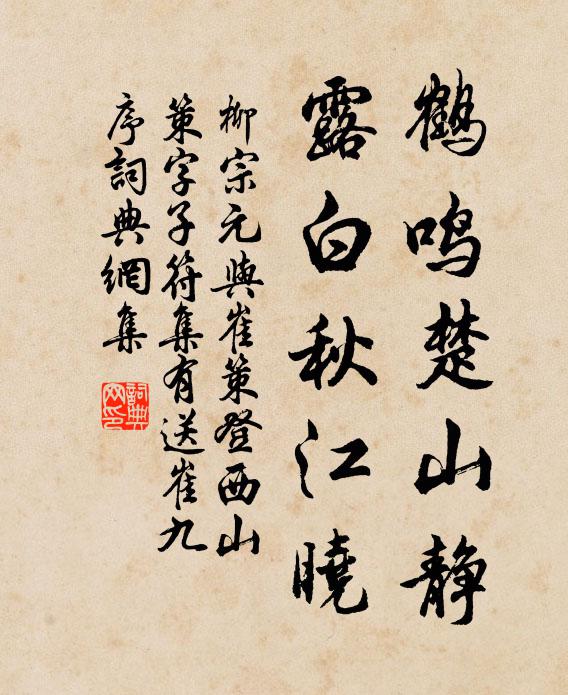 鹤鸣楚山静
露白秋江曉
柳宗元與崔策登西山
策字子符集有送崔九
序詞典網集
詞典网印